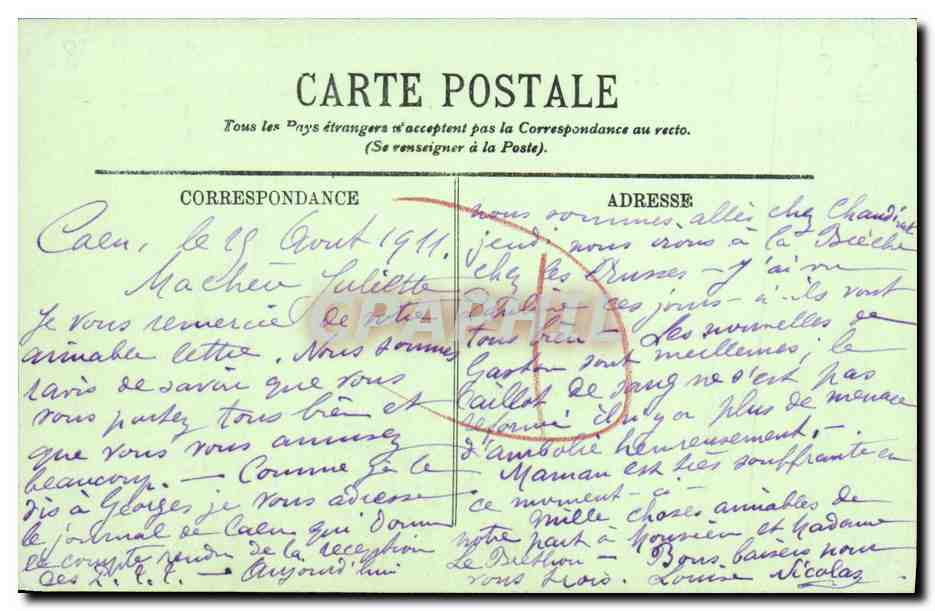 CARTE POSTALE
Tous les Pays étrangers n'acceptent pas la Correspondance au recto.
(Se renseigner à la Poste).
CORRESPONDANCE
Caen, le 29 Aout 1911.
Ma chère Juliette
Je vous remercie de votre
aimable lettre. Nous sommes
ravis de savoir que vous
vous portez tous bien et
que vous vous amusez
beaucoup. - Comme je le
dis à Georges je vous adresse
le journal de Caen qui donne
le compte rendu de la réception
des - Aujourd'hui
ADRESSE
nous sommes allés chez
jeudi nous irons à la
chez les - J'ai vu
ces jours-ci ils vont
tous bien - Les nouvelles de
Gaston sont meilleures, le
caillot de sang ne s'est pas
reformé il n'y a plus de menace
d'embolie heureusement. -
Maman est très souffrante en
ce moment-ci -
Mille choses aimables de
notre part à Monsieur et Madame
Le - Bons baisers pour
vous trois. Louise Nicolas.
CPAPHIL